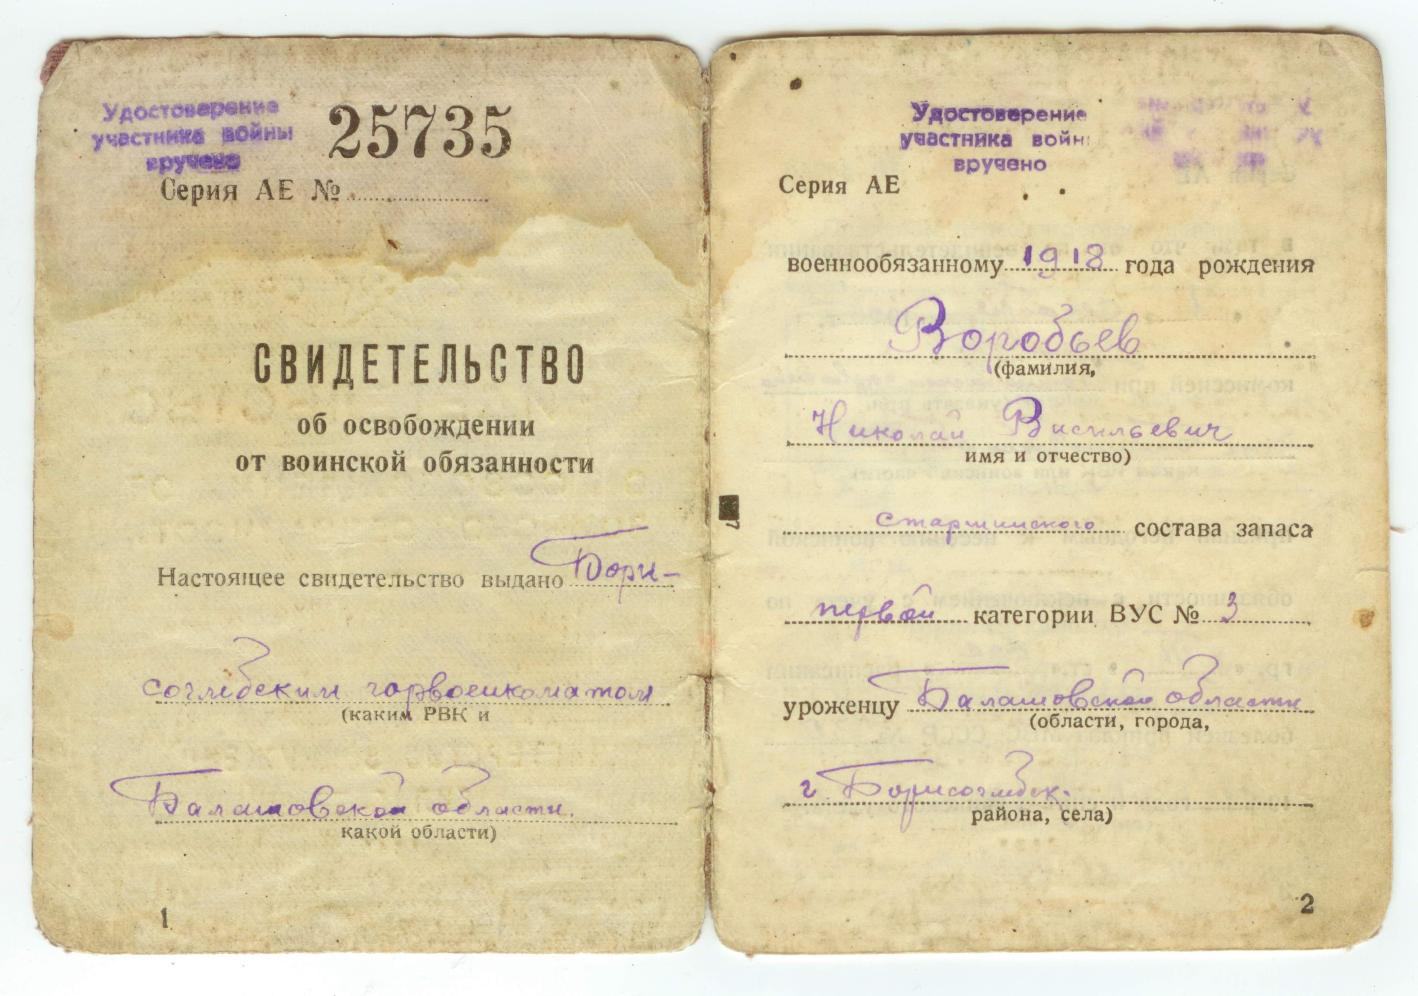 Удостоверение
участника войны
вручено
25735
Серия АЕ №
СВИДЕТЕЛЬСТВО
об освобождении
от воинской обязанности
Настоящее свидетельство выдано Бори-
соглебским горвоенкоматом
(каким РВК и
Балашовской области.
какой области)
1
Удостоверение
участника войны
вручено
Серия АЕ
военнообязанному 1918 года рождения
Воробьев
(фамилия,
Николай Васильевич
имя и отчество)
старшинского состава запаса
первой категории ВУС № 3
уроженцу Балашовской области
(области, города,
г. Борисоглебск.
района, села)
2